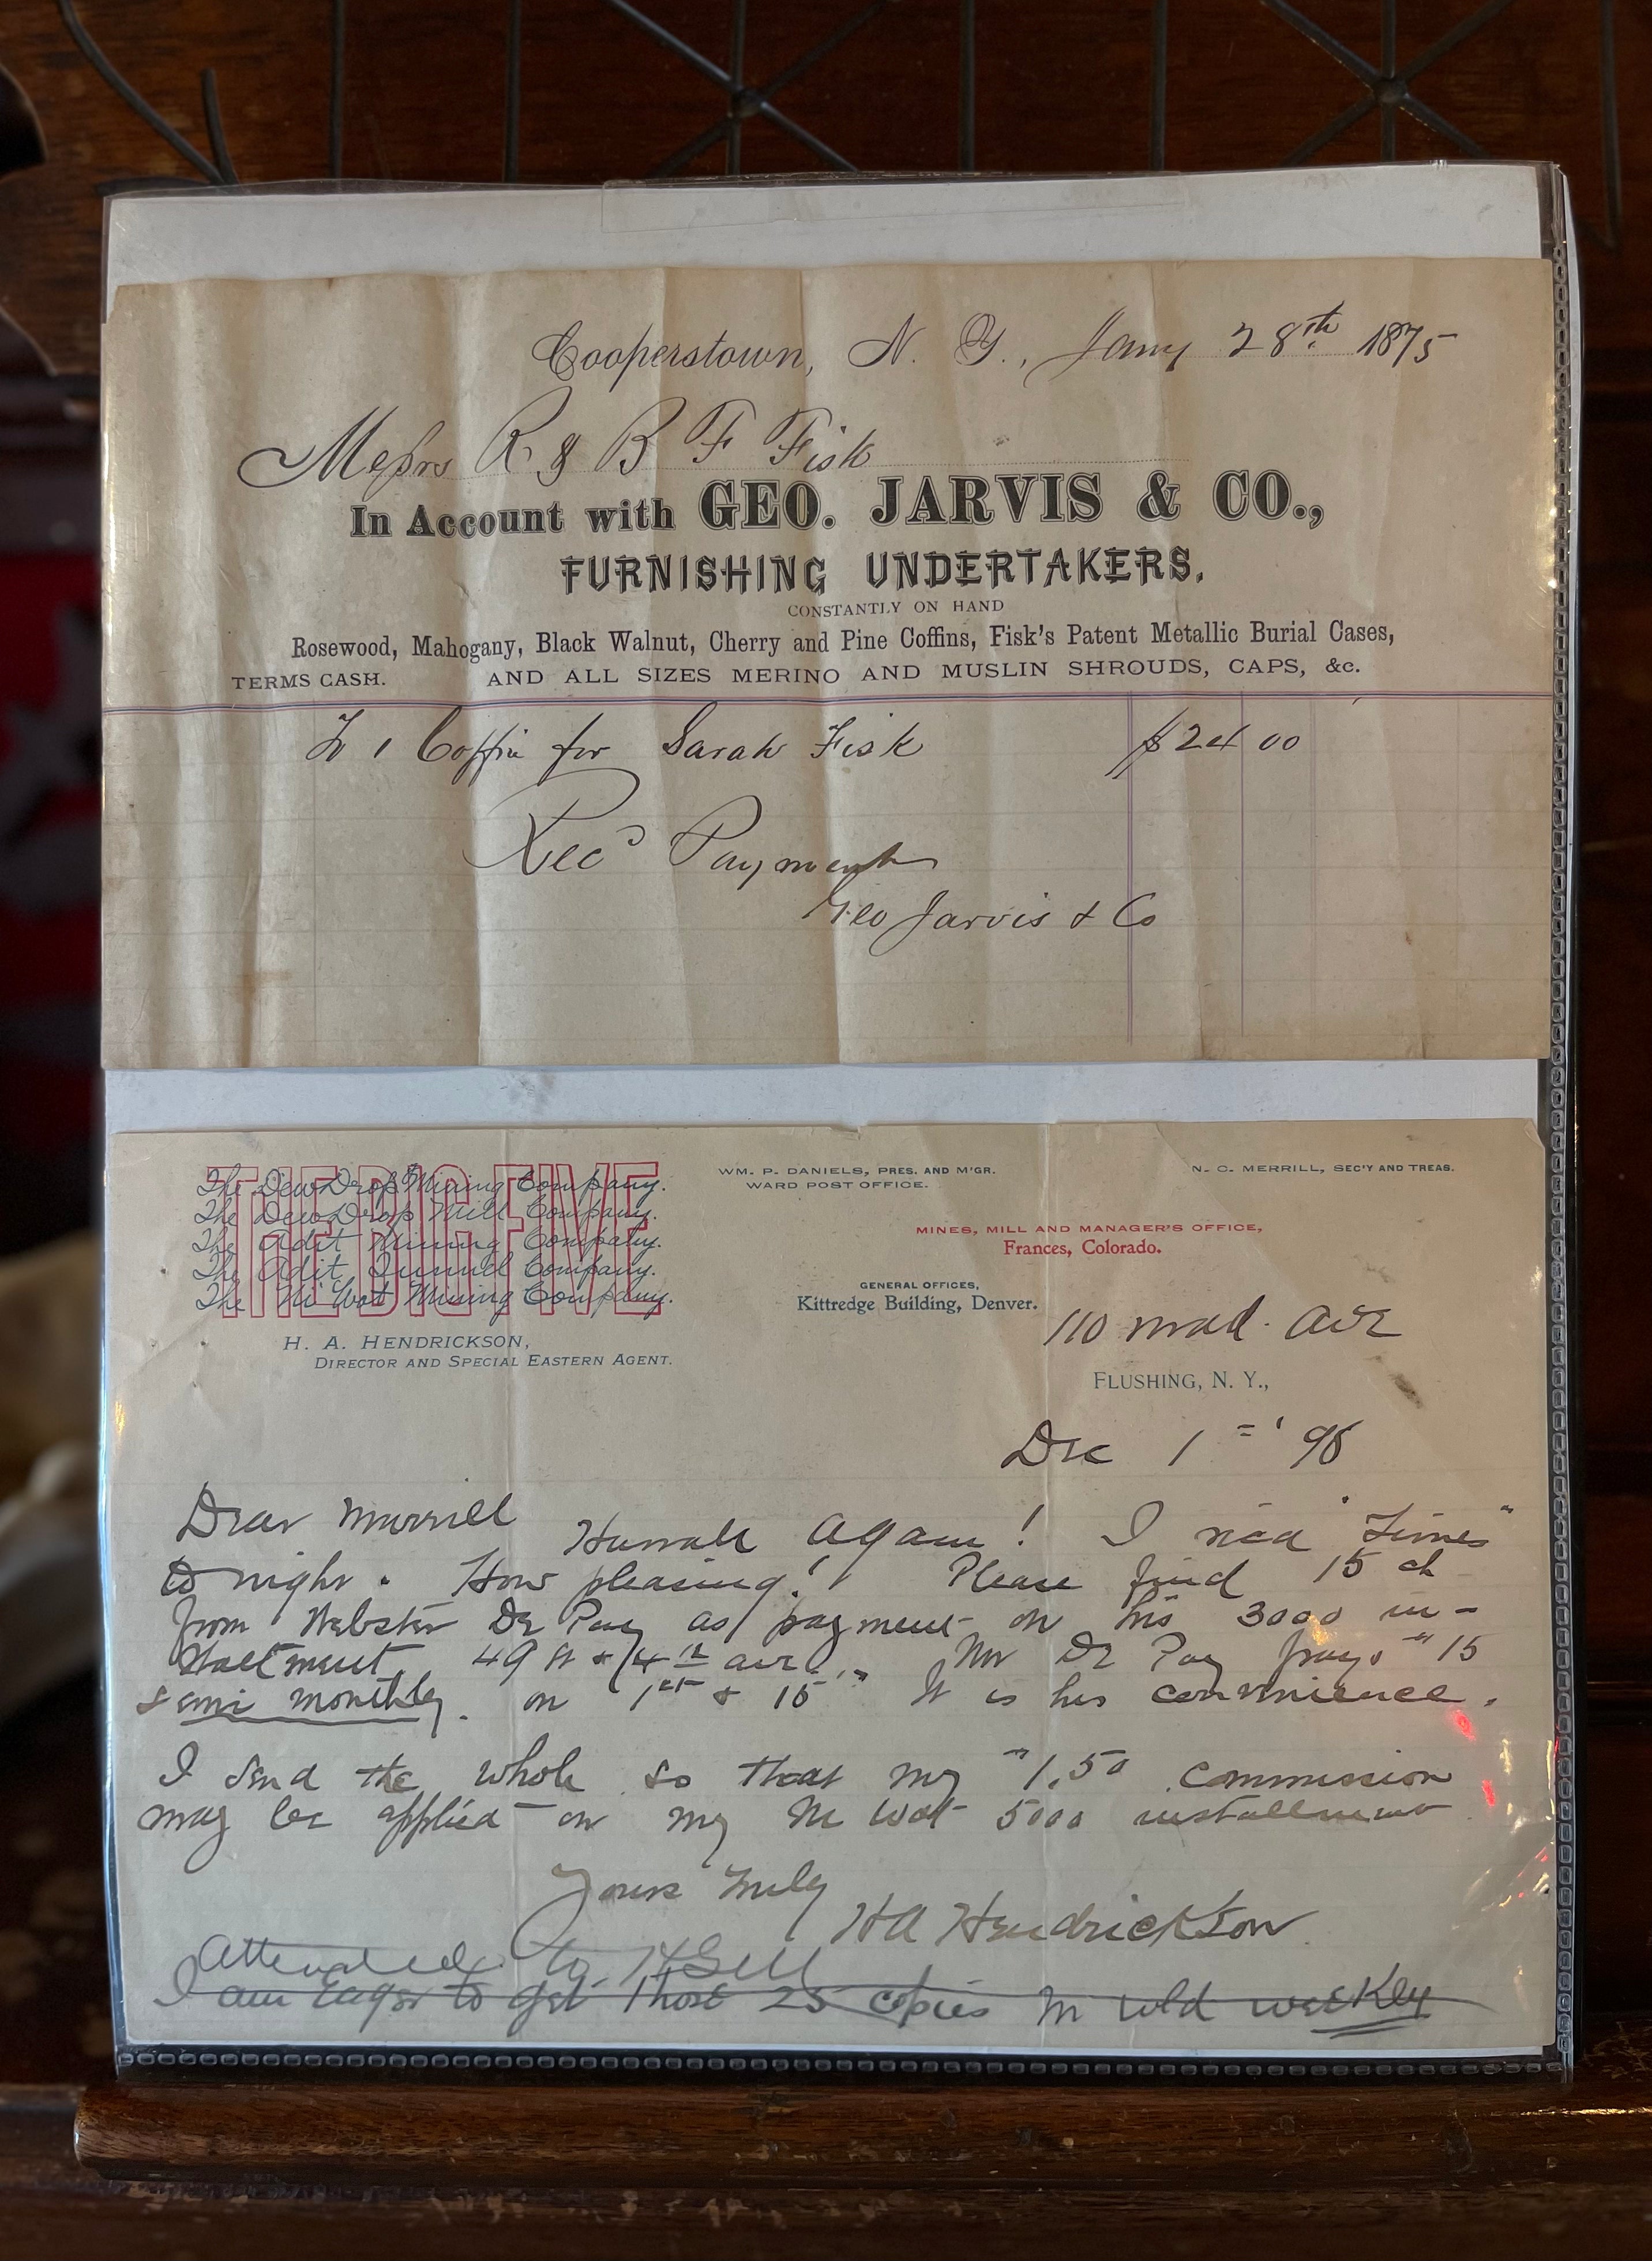 Cooperstown, N. Y., Jany 28th 1875
Messrs R & B F Fisk
In Account with GEO. JARVIS & CO.,
FURNISHING UNDERTAKERS.
CONSTANTLY ON HAND
Rosewood, Mahogany, Black Walnut, Cherry and Pine Coffins, Fisk's Patent Metallic Burial Cases,
TERMS CASH. AND ALL SIZES MERINO AND MUSLIN SHROUDS, CAPS, &c.
To 1 Coffin for Sarah Fisk $24 00
Recd Payment
Geo Jarvis & Co
THE BIG FIVE
The Dew Drop Mining Company.
The Dew Drop Mill Company.
The Adit Mining Company.
The Adit Tunnel Company.
The Ni Wot Mining Company.
H. A. HENDRICKSON,
DIRECTOR AND SPECIAL EASTERN AGENT.
WM. P. DANIELS, PRES. AND M'GR.
WARD POST OFFICE.
N. C. MERRILL, SEC'Y AND TREAS.
MINES, MILL AND MANAGER'S OFFICE,
Frances, Colorado.
GENERAL OFFICES,
Kittredge Building, Denver.
110 Mad. Ave
FLUSHING, N. Y.,
Dec 1 = '98
Dear Merrill
Hurrah Again! I read "Times"
to night. How pleasing! Please find 15 ch
from Webster De Pay as payment on his 3000 in-
stallment. 49 St & 4th ave. Mr De Pay pays 15
semi monthly. on 1st & 15 It is his convenience.
I send the whole so that my 1.50 commission
may be applied on my Ni Wot 5000 installment
Yours Truly
HA Hendrickson
Attended to
I am Eager to get those 25 copies M Wld weekly